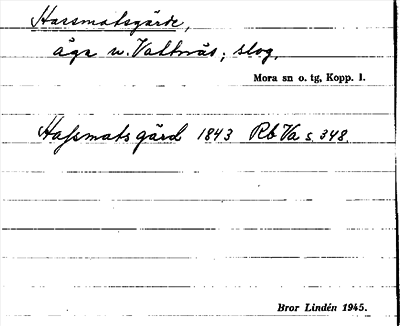 Hassmatsgärde,
äga n. Vattnäs; slog.
Mora sn o. tg, Kopp. l.
Hassmatsgärd 1843 Rb Va s. 348.
Bror Lindén 1945.